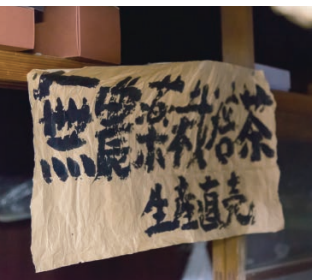 無農薬栽培茶
生産直売